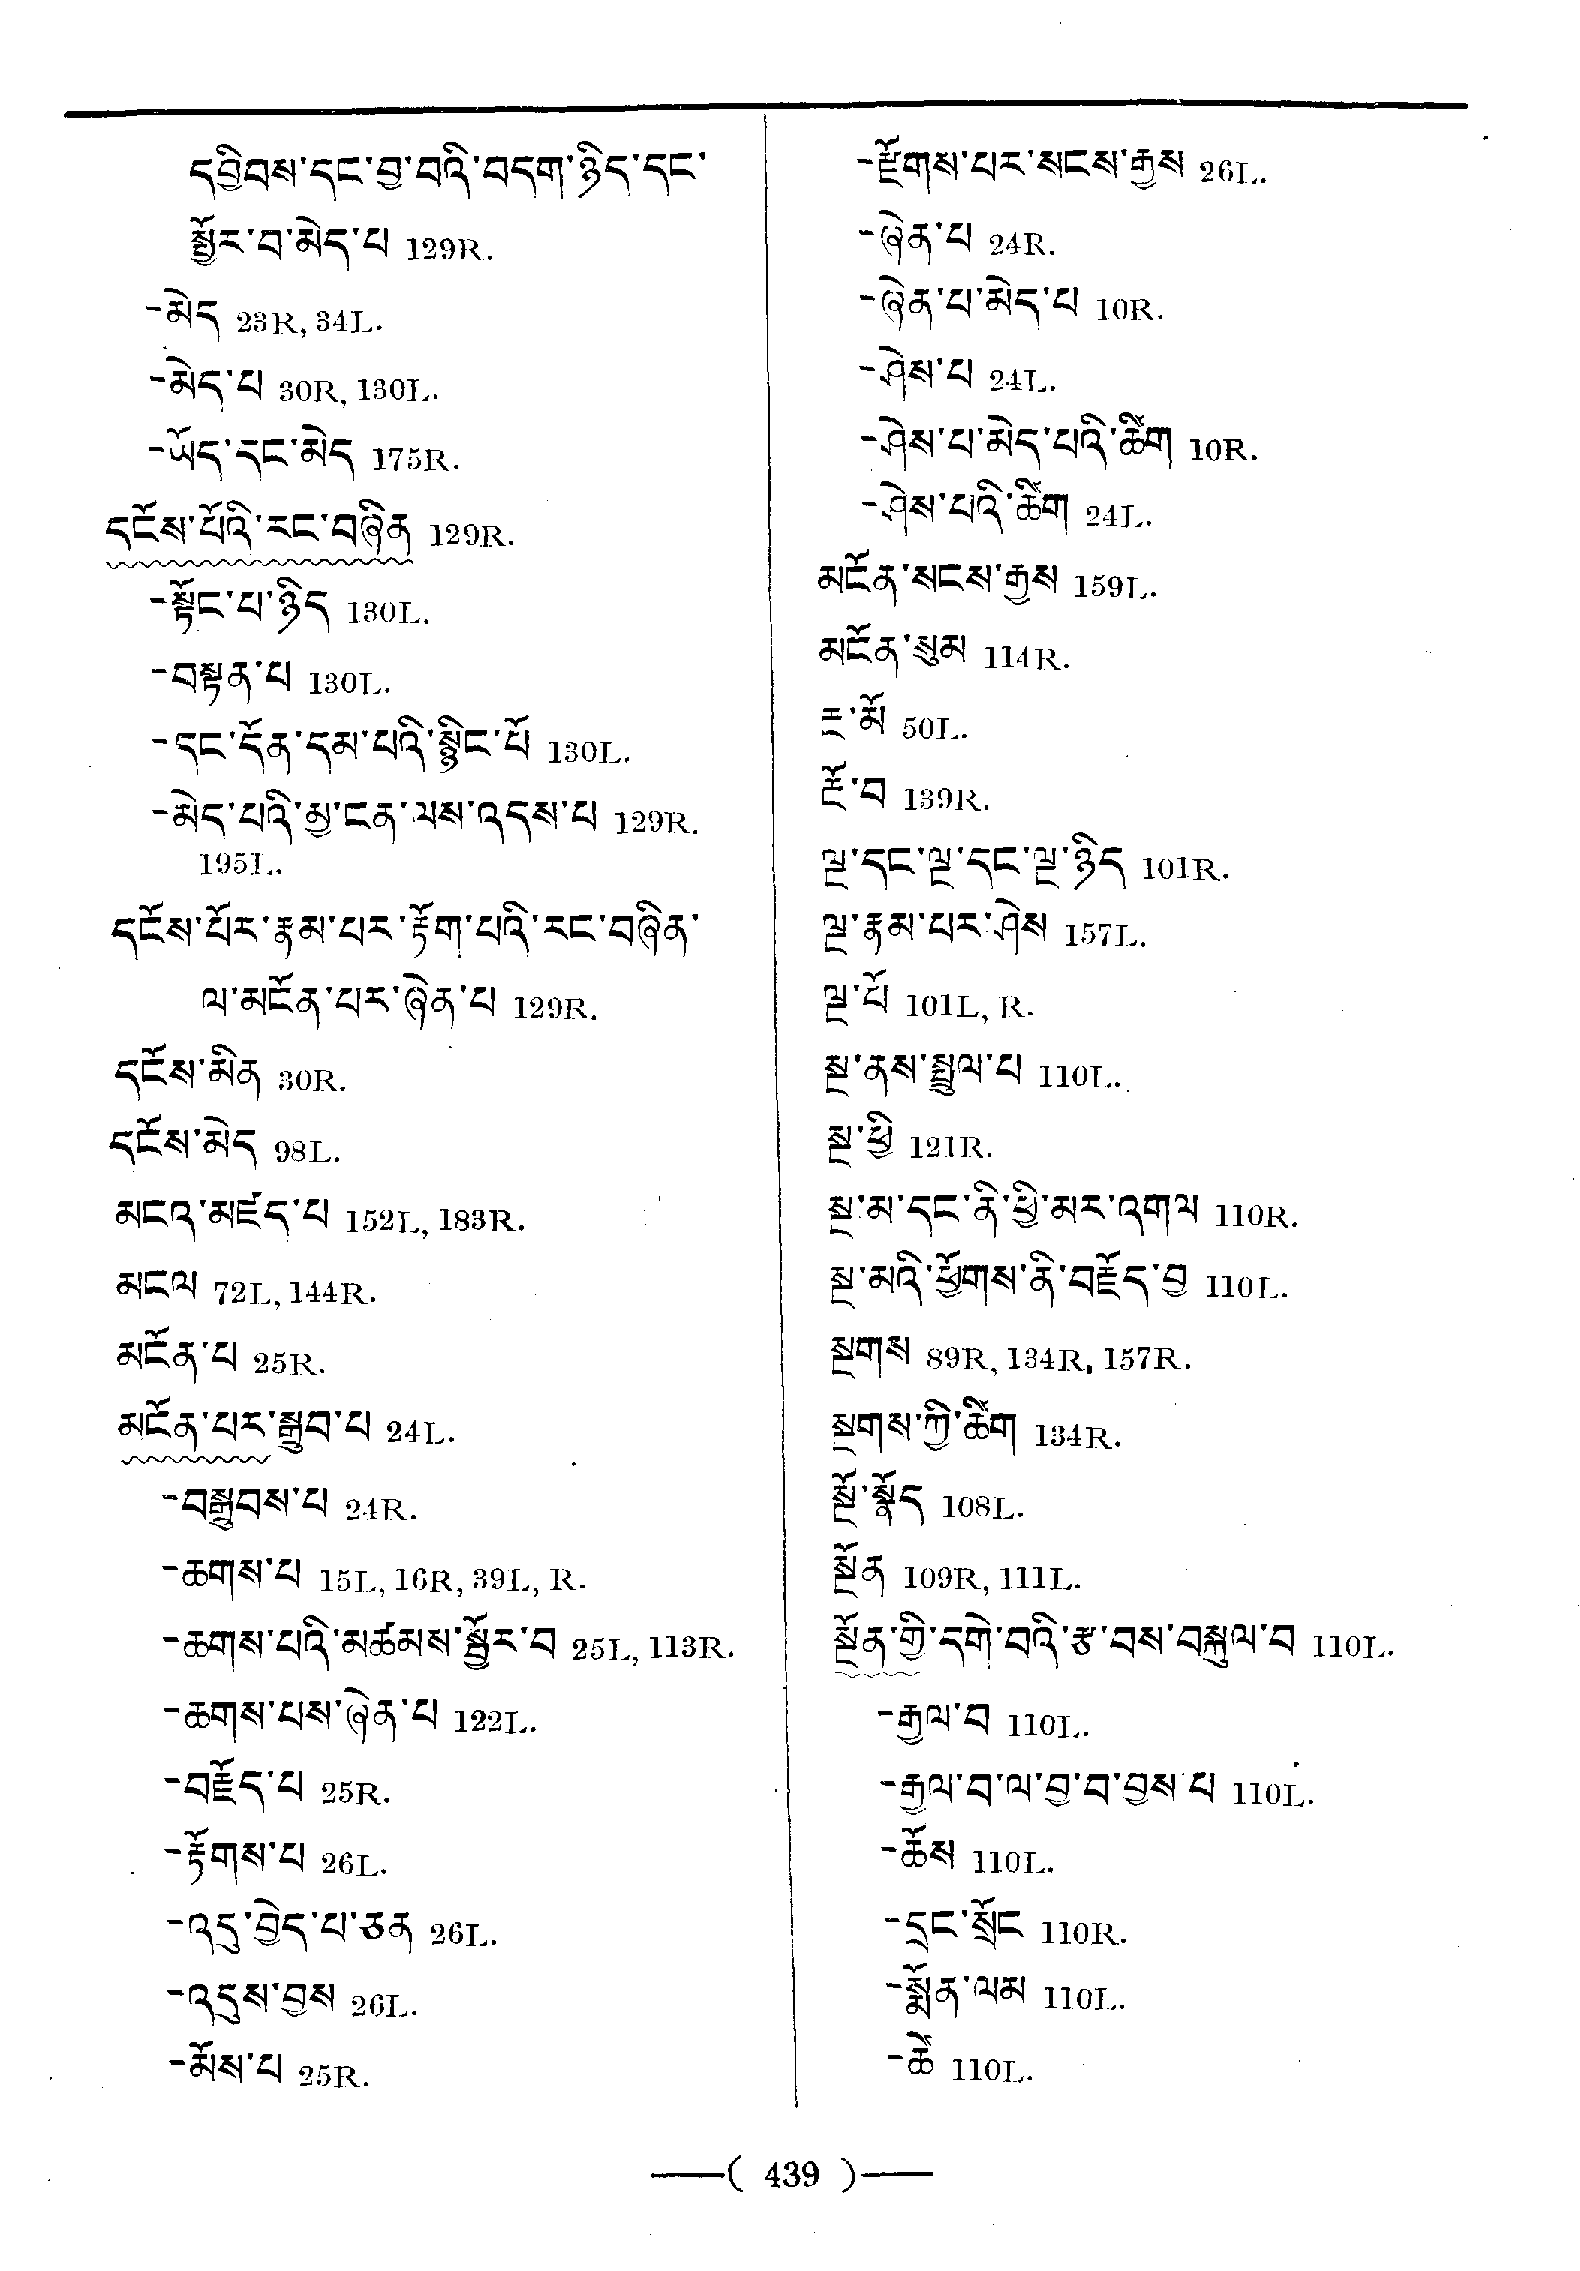 དབྱིབས་དང་བྱ་བའི་བདག་ཉིད་དང་
སྦྱོར་བ་མེད་པ 129R.
-མེད 23R, 34L.
-མེད་པ 30R, 130L.
-ཡོད་དང་མེད 175R.
དངོས་པོའི་རང་བཞིན 129R.
-སྟོང་པ་ཉིད 130L.
-བསྟན་པ 130L.
-དང་དོན་དམ་པའི་སྙིང་པོ 130L.
-མེད་པའི་མྱ་ངན་ལས་འདས་པ 129R.
195L.
དངོས་པོར་རྣམ་པར་རྟོག་པའི་རང་བཞིན་
ལ་མངོན་པར་ཞེན་པ 129R.
དངོས་མིན 30R.
དངོས་མེད 98L.
མངའ་མཛད་པ 152L, 183R.
མངལ 72L, 144R.
མངོན་པ 25R.
མངོན་པར་སྒྲུབ་པ 24L.
-བསྒྲུབས་པ 24R.
-ཆགས་པ 15L, 16R, 39L, R.
-ཆགས་པའི་མཚམས་སྦྱོར་བ 25L, 113R.
-ཆགས་པས་ཞེན་པ 122L.
-བརྗོད་པ 25R.
-རྟོགས་པ 26L.
-འདུ་བྱེད་པ་ཅན 26L.
-འདུས་བྱས 26L.
-མོས་པ 25R.
-རྫོགས་པར་སངས་རྒྱས 26L.
-ཞེན་པ 24R.
-ཞེན་པ་མེད་པ 10R.
-ཤེས་པ 24L.
-ཤེས་པ་མེད་པའི་ཚིག 10R.
-ཤེས་པའི་ཚིག 24L.
མངོན་སངས་རྒྱས 159L.
མངོན་སུམ 114R.
རྔ་མོ 50L.
རྔོ་བ 139R.
ལྔ་དང་ལྔ་དང་ལྔ་ཉིད 101R.
ལྔ་རྣམ་པར་ཤེས 157L.
ལྔ་པོ 101L, R.
སྔ་ནས་སྤྲུལ་པ 110L.
སྔ་ཕྱི 121R.
སྔ་མ་དང་ནི་ཕྱི་མར་འགལ 110R.
སྔ་མའི་ཕྱོགས་ནི་བརྗོད་བྱ 110L.
སྔགས 89R, 134R, 157R.
སྔགས་ཀྱི་ཚིག 134R.
སྔོ་སྣོད 108L.
སྔོན 109R, 111L.
སྔོན་གྱི་དགེ་བའི་རྩ་བས་བསྐུལ་བ 110L.
-རྒྱལ་བ 110L.
-རྒྱལ་བ་ལ་བྱ་བ་བྱས་པ 110L.
-ཆོས 110L.
-དྲང་སྲོང 110R.
-སྨོན་ལམ 110L.
-ཚེ 110L.
( 439 )